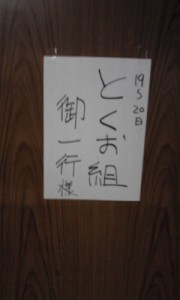 19〜20日
とくお組
御一行様